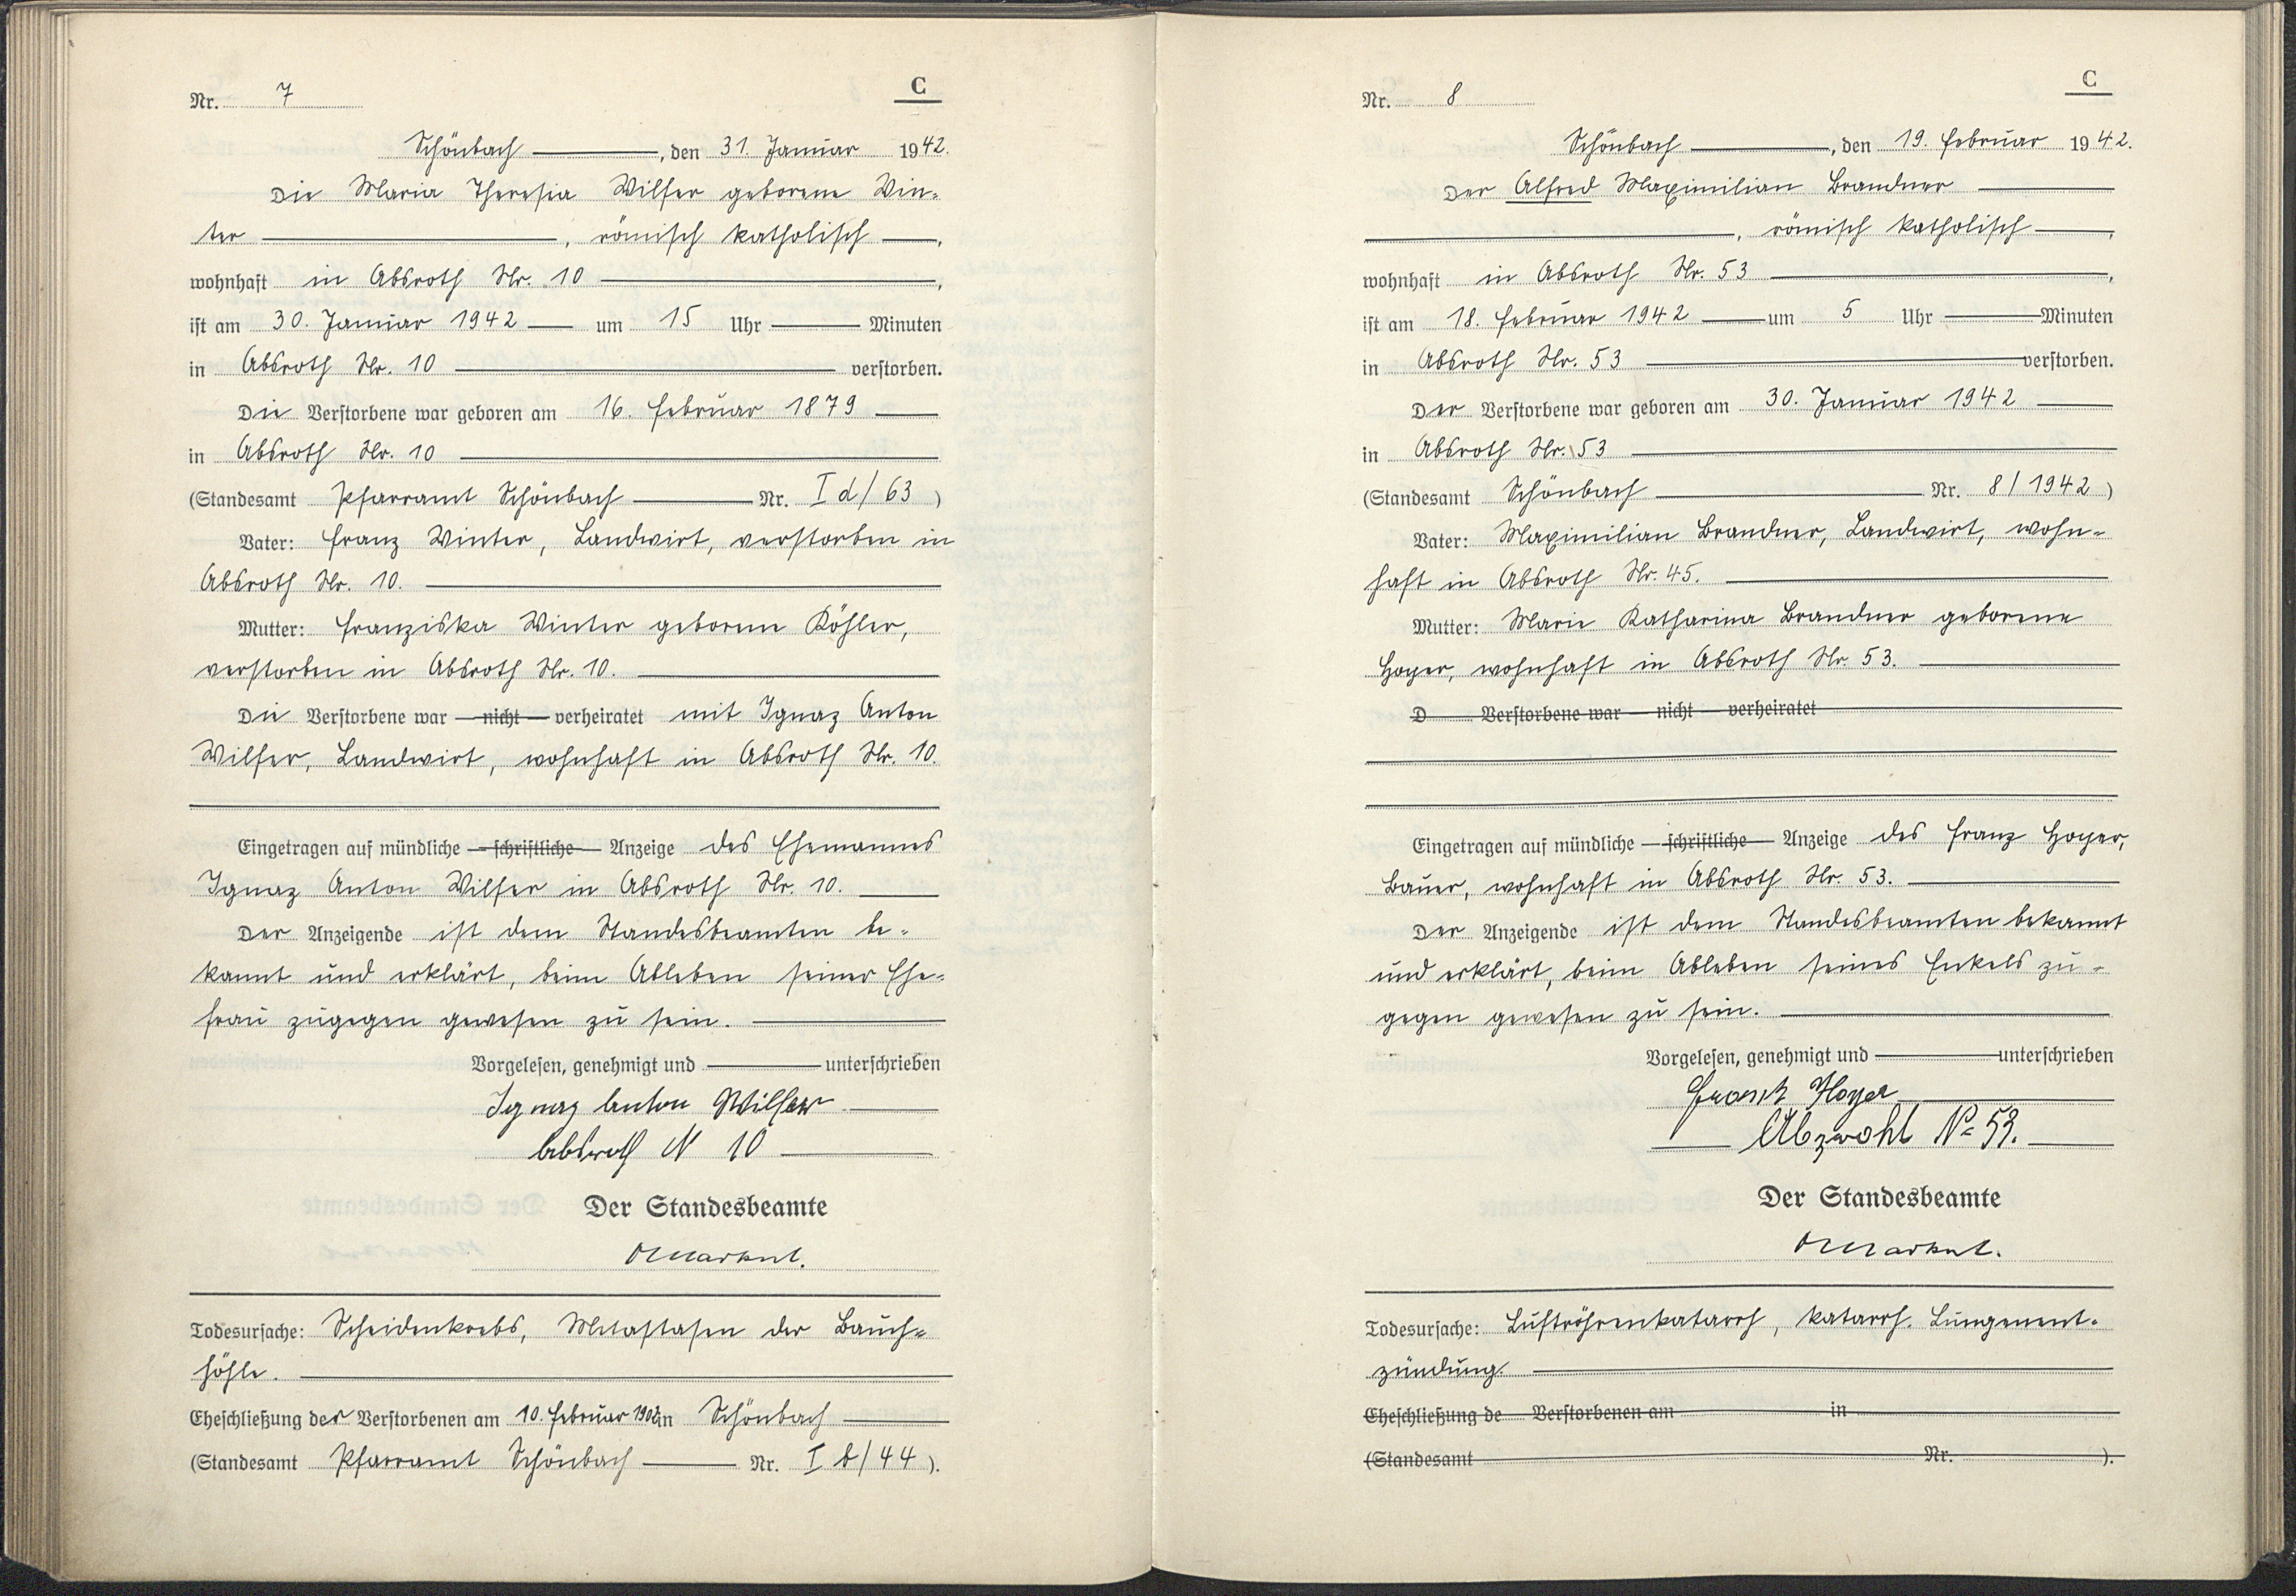 C
Nr. 7
Schönbach, den 31. Januar 1942.
Die Maria Theresia Wilfer geborene Win-
ter, römisch katholisch,
wohnhaft in Absroth Nr. 10,
ist am 30. Januar 1942 um 15 Uhr Minuten
in Absroth Nr. 10 verstorben.
Die Verstorbene war geboren am 16. Februar 1879
in Absroth Nr. 10
(Standesamt Pfarramt Schönbach Nr. I d/63)
Vater: Franz Winter, Landwirt, verstorben in
Absroth Nr. 10.
Mutter: Franziska Winter geborene Köhler,
verstorben in Absroth Nr. 10.
Die Verstorbene war nicht verheiratet mit Ignaz Anton
Wilfer, Landwirt, wohnhaft in Absroth Nr. 10.
Eingetragen auf mündliche schriftliche Anzeige des Ehemannes
Ignaz Anton Wilfer in Absroth Nr. 10.
Der Anzeigende ist dem Standesbeamten be-
kannt und erklärt, beim Ableben seiner Ehe-
frau zugegen gewesen zu sein.
Vorgelesen, genehmigt und unterschrieben
Ignaz Anton Wilfer
Absroth N 10
Der Standesbeamte
Todesursache: Scheidenkrebs, Metastasen der Bauch-
höhle.
Eheschließung der Verstorbenen am 10. Februar 1902 in Schönbach
(Standesamt Pfarramt Schönbach Nr. I b/44).
C
Nr. 8
Schönbach, den 19. Februar 1942.
Der Alfred Maximilian Brandner
, römisch katholisch,
wohnhaft in Absroth Nr. 53,
ist am 18. Februar 1942 um 5 Uhr Minuten
in Absroth Nr. 53 verstorben.
Der Verstorbene war geboren am 30. Januar 1942
in Absroth Nr. 53
(Standesamt Schönbach Nr. 8/1942)
Vater: Maximilian Brandner, Landwirt, wohn-
haft in Absroth Nr. 45.
Mutter: Marie Katharina Brandner geborene
Hoyer, wohnhaft in Absroth Nr. 53.
D Verstorbene war nicht verheiratet
Eingetragen auf mündliche schriftliche Anzeige des Franz Hoyer,
Bauer, wohnhaft in Absroth Nr. 53.
Der Anzeigende ist dem Standesbeamten bekannt
und erklärt, beim Ableben seines Enkels zu-
gegen gewesen zu sein.
Vorgelesen, genehmigt und unterschrieben
Hoyer
No 53.
Der Standesbeamte
Todesursache: Luftröhrenkatarrh, katarrh. Lungenent-
zündung.
Eheschließung de Verstorbenen am in
(Standesamt Nr. ).